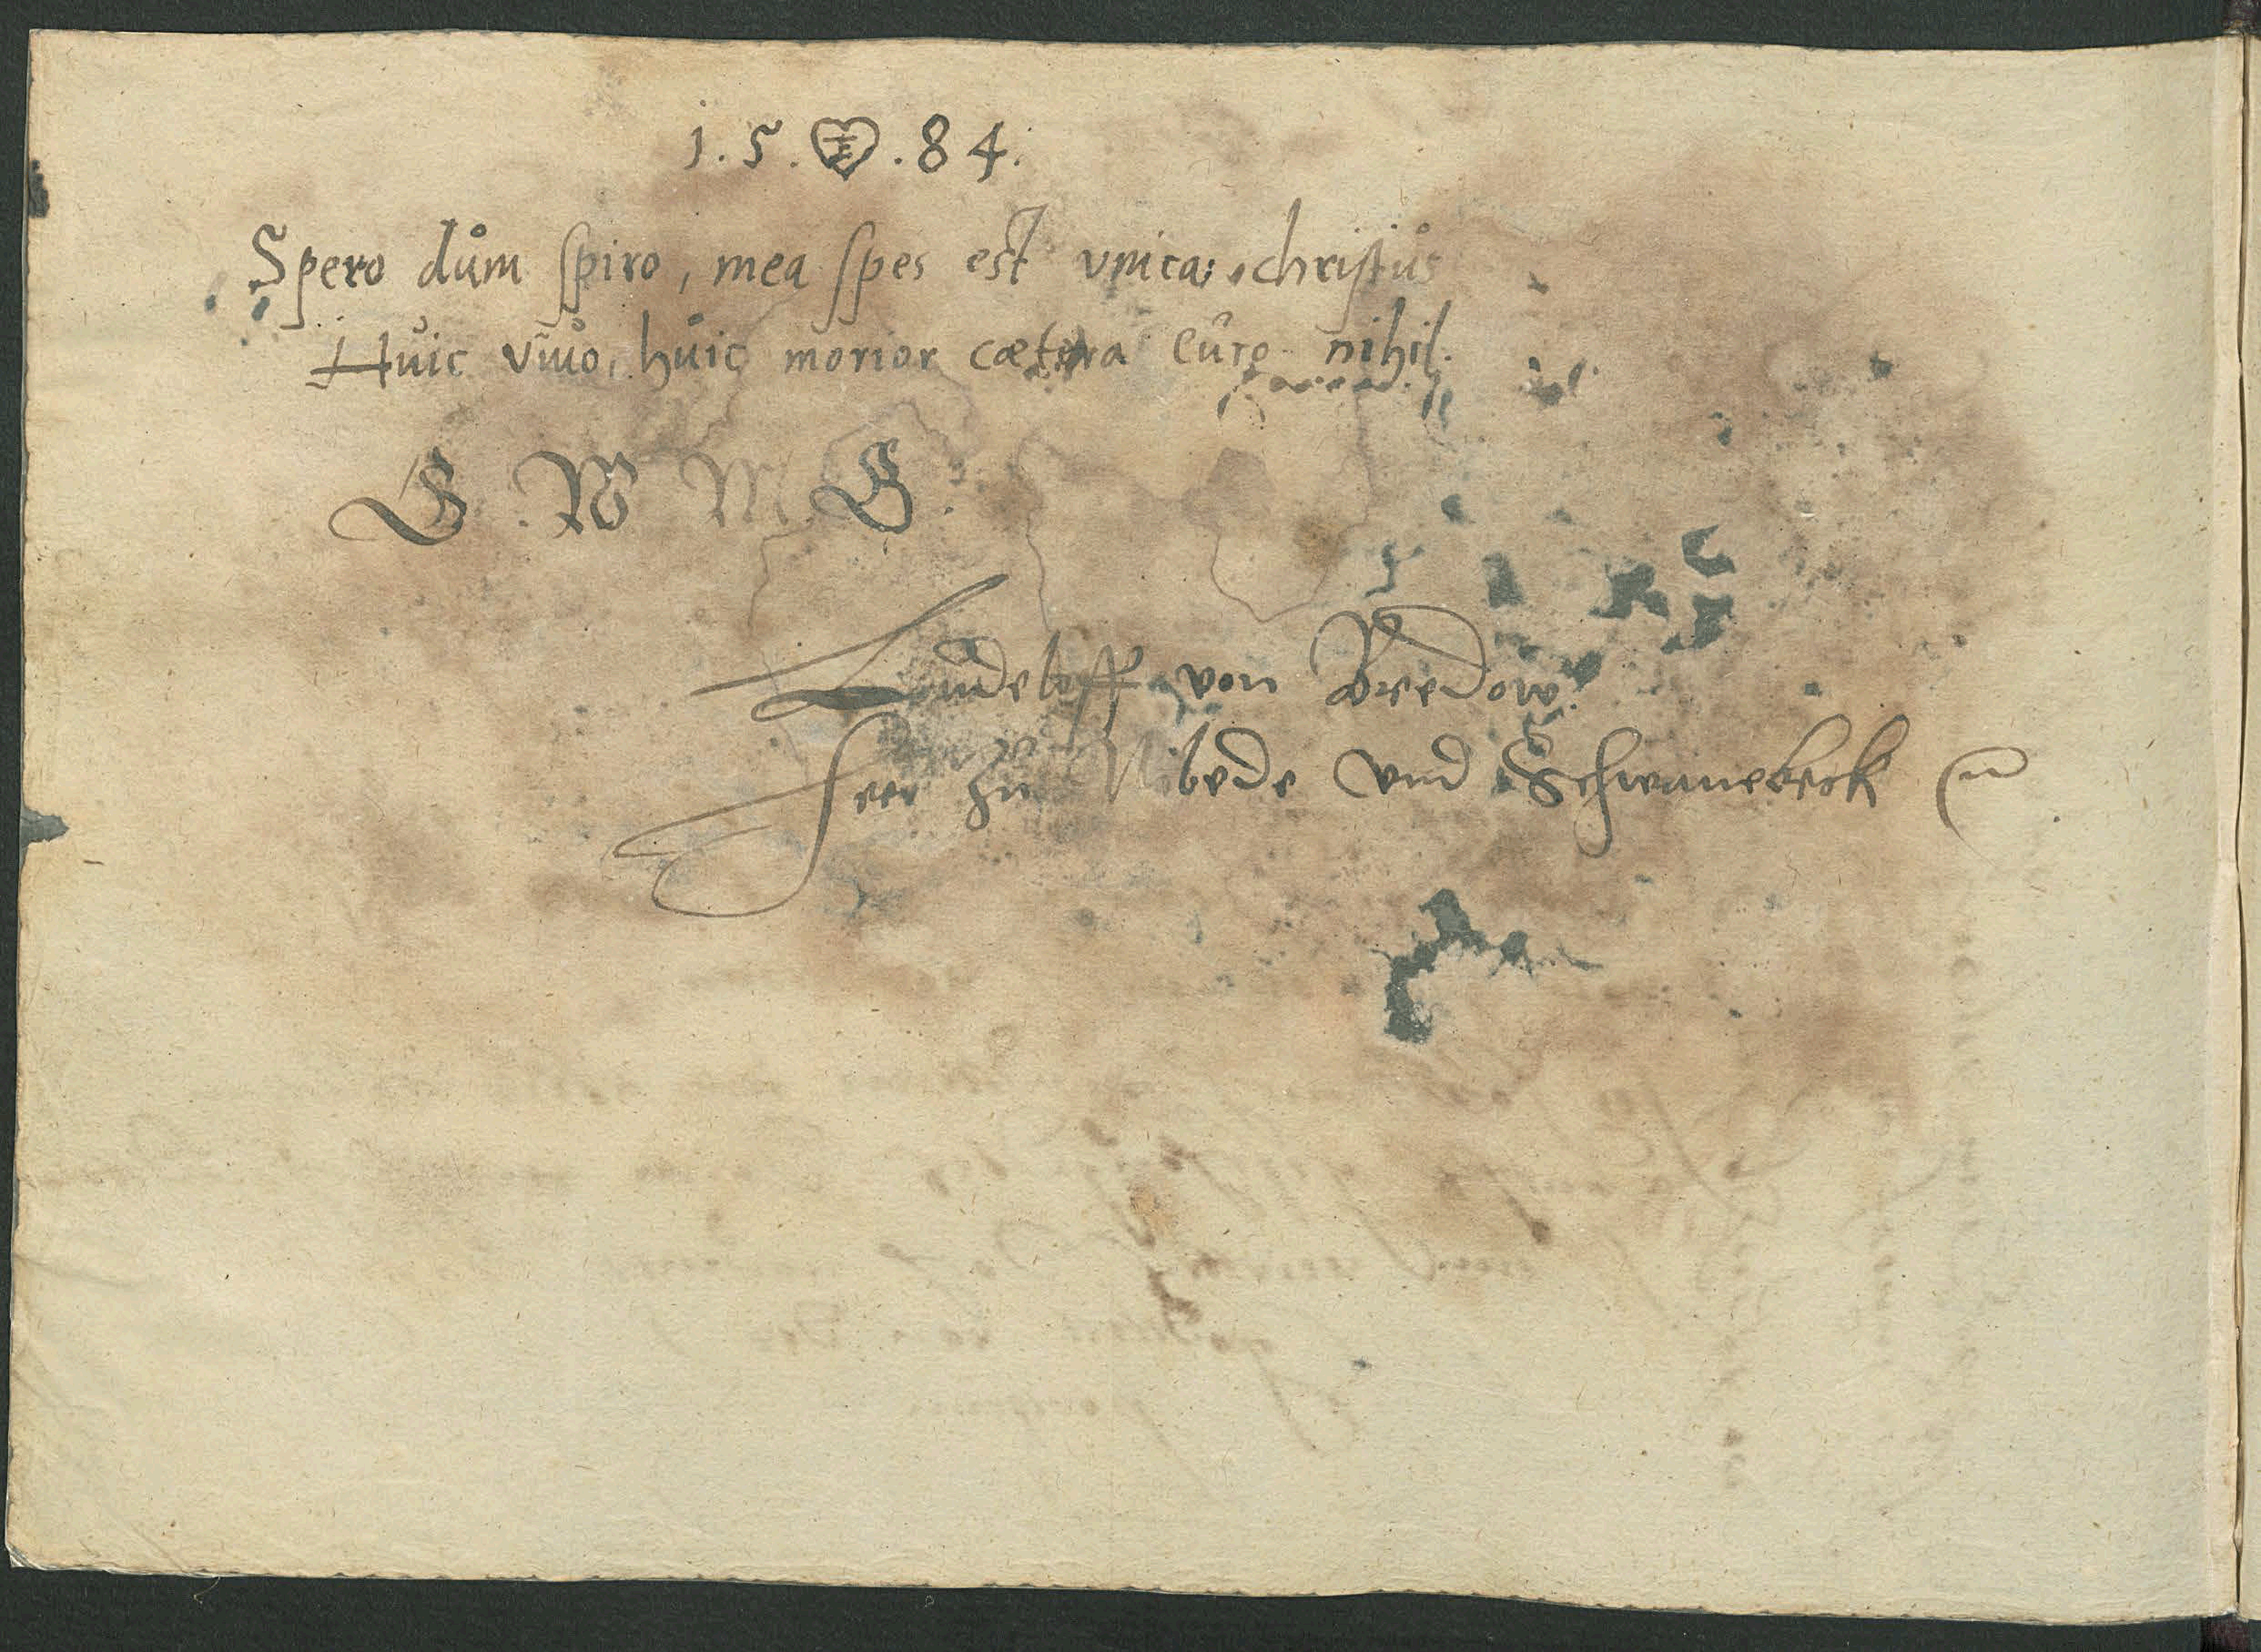 1.5. .84.
Spero dům spiro, mea spes est vnica christůs
Hůic viuo, hůic morior cætera cůro nihil.
G. W M. G.
Lůdeloff von Bredow
Herr zů Vibede vnd Schwanebeck